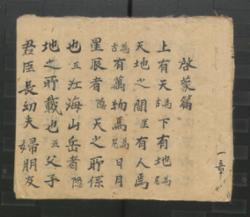 一章
啓蒙篇
上有天爲古下有地爲
天地之間厓有人焉
爲古有萬物焉日月
星辰者隱天之所係
也五江海山岳者隱
地之所載也五父子
君臣長幼夫婦朋友